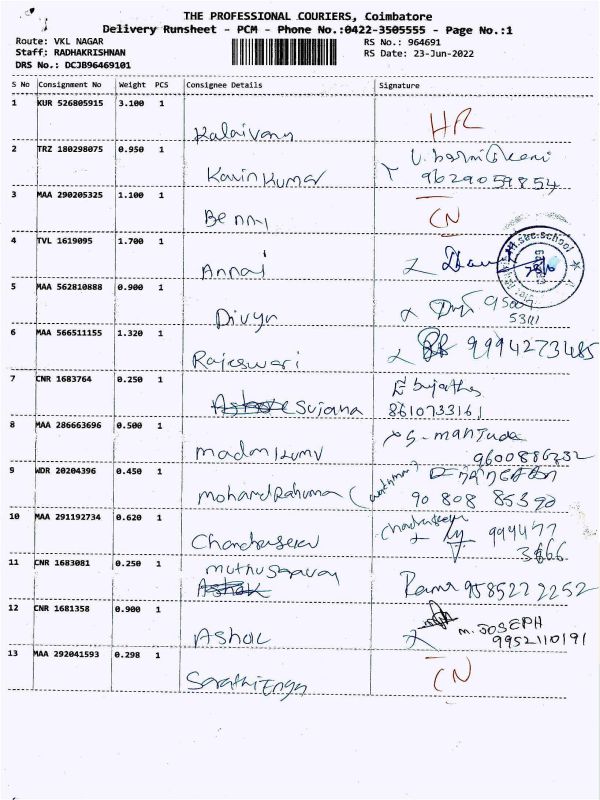 THE PROFESSIONAL COURIERS, Coimbatore
Delivery Runsheet - PCM - Phone No.:0422-3505555 - Page No.:1
Route: VKL NAGAR
Staff: RADHAKRISHNAN
DRS No.: DCJB96469101
RS No.: 964691
RS Date: 23-Jun-2022
S No Consignment No Weight PCS Consignee Details Signature
1 KUR 526805915 3.100 1
Kalaivany HR
2 TRZ 180298075 0.950 1
Kavin Kumar 9629059854
3 MAA 290205325 1.100 1
Benny CN
4 TVL 1619095 1.700 1
Annai
5 MAA 562810888 0.900 1
Divya
6 MAA 566511155 1.320 1
Rajeswari 9994273485
7 CNR 1683764 0.250 1
Sujana 8610733161
8 MAA 286663696 0.500 1
madan kumv S-manjuda
9600886732
9 WDR 20204396 0.450 1
mohand Rahuma
90 808 85390
10 MAA 291192734 0.620 1
Chandrasekar 999477
11 CNR 1683081 0.250 1
muthusaravan
Rama 9585222252
12 CNR 1681358 0.900 1
Ashok M. JOSEPH
9952110191
13 MAA 292041593 0.298 1
Sarathi Engn CN